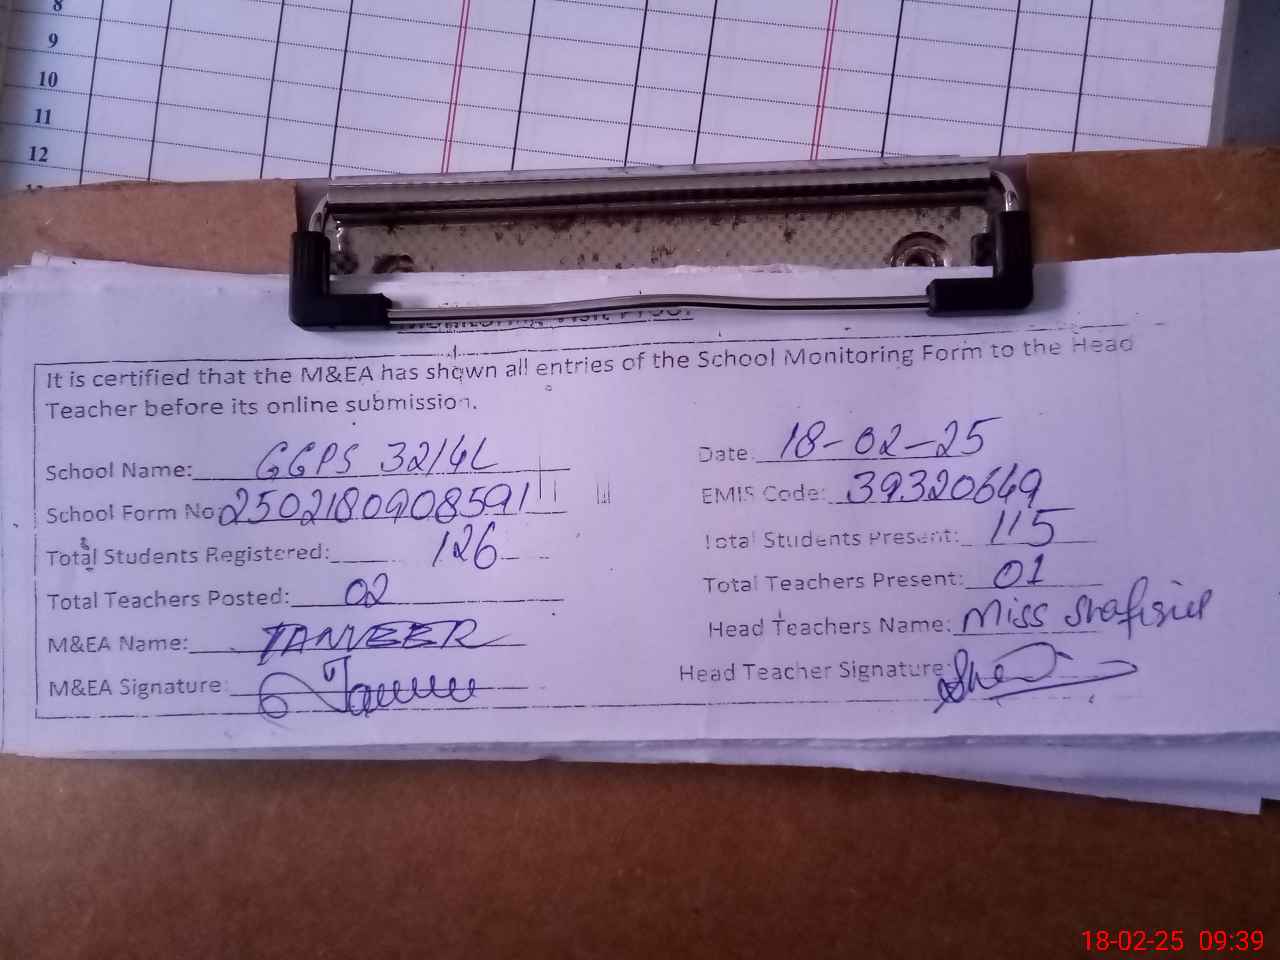 8
9
10
11
12
It is certified that the M&EA has shown all entries of the School Monitoring Form to the Head
Teacher before its online submission.
School Name: GGPS 32/4L
Date: 18-02-25
School Form No: 2502180908591
EMIS Code: 39320649
Total Students Registered: 126
Total Students Present: 115
Total Teachers Posted: 02
Total Teachers Present: 01
M&EA Name: TANVEER
Head Teachers Name: Miss
M&EA Signature:
Head Teacher Signature:
18-02-25 09:39